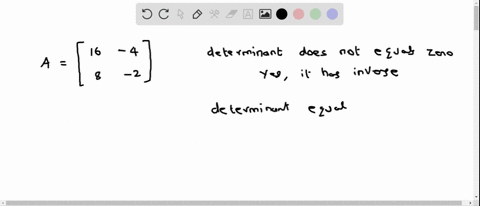 A = [ 16 -4
8 -2 ]
determinant does not equal zero
Yes, it has inverse
determinant equal